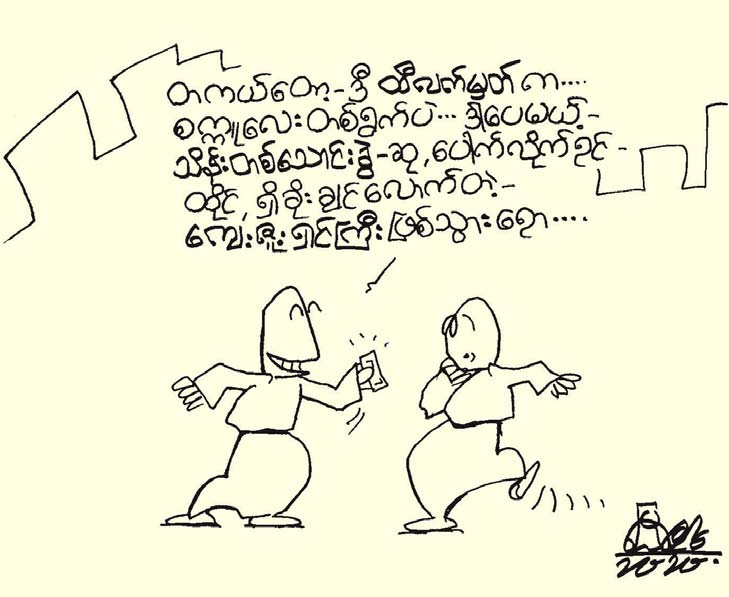 တကယ်တော့-ဒီ ထီလက်မှတ် က....
စက္ကူလေး တစ်ရွက်ပဲ... ဒါပေမယ့်-
သိန်းတစ်သောင်းခွဲ-ဆု,ပေါက်လိုက်ဥင်-
ထိုင်,ရှိခိုးချင်လောက်တဲ့-
ကျေးဇူးရှင်ကြီး ဖြစ်သွားရော....
၂၀၂၀.